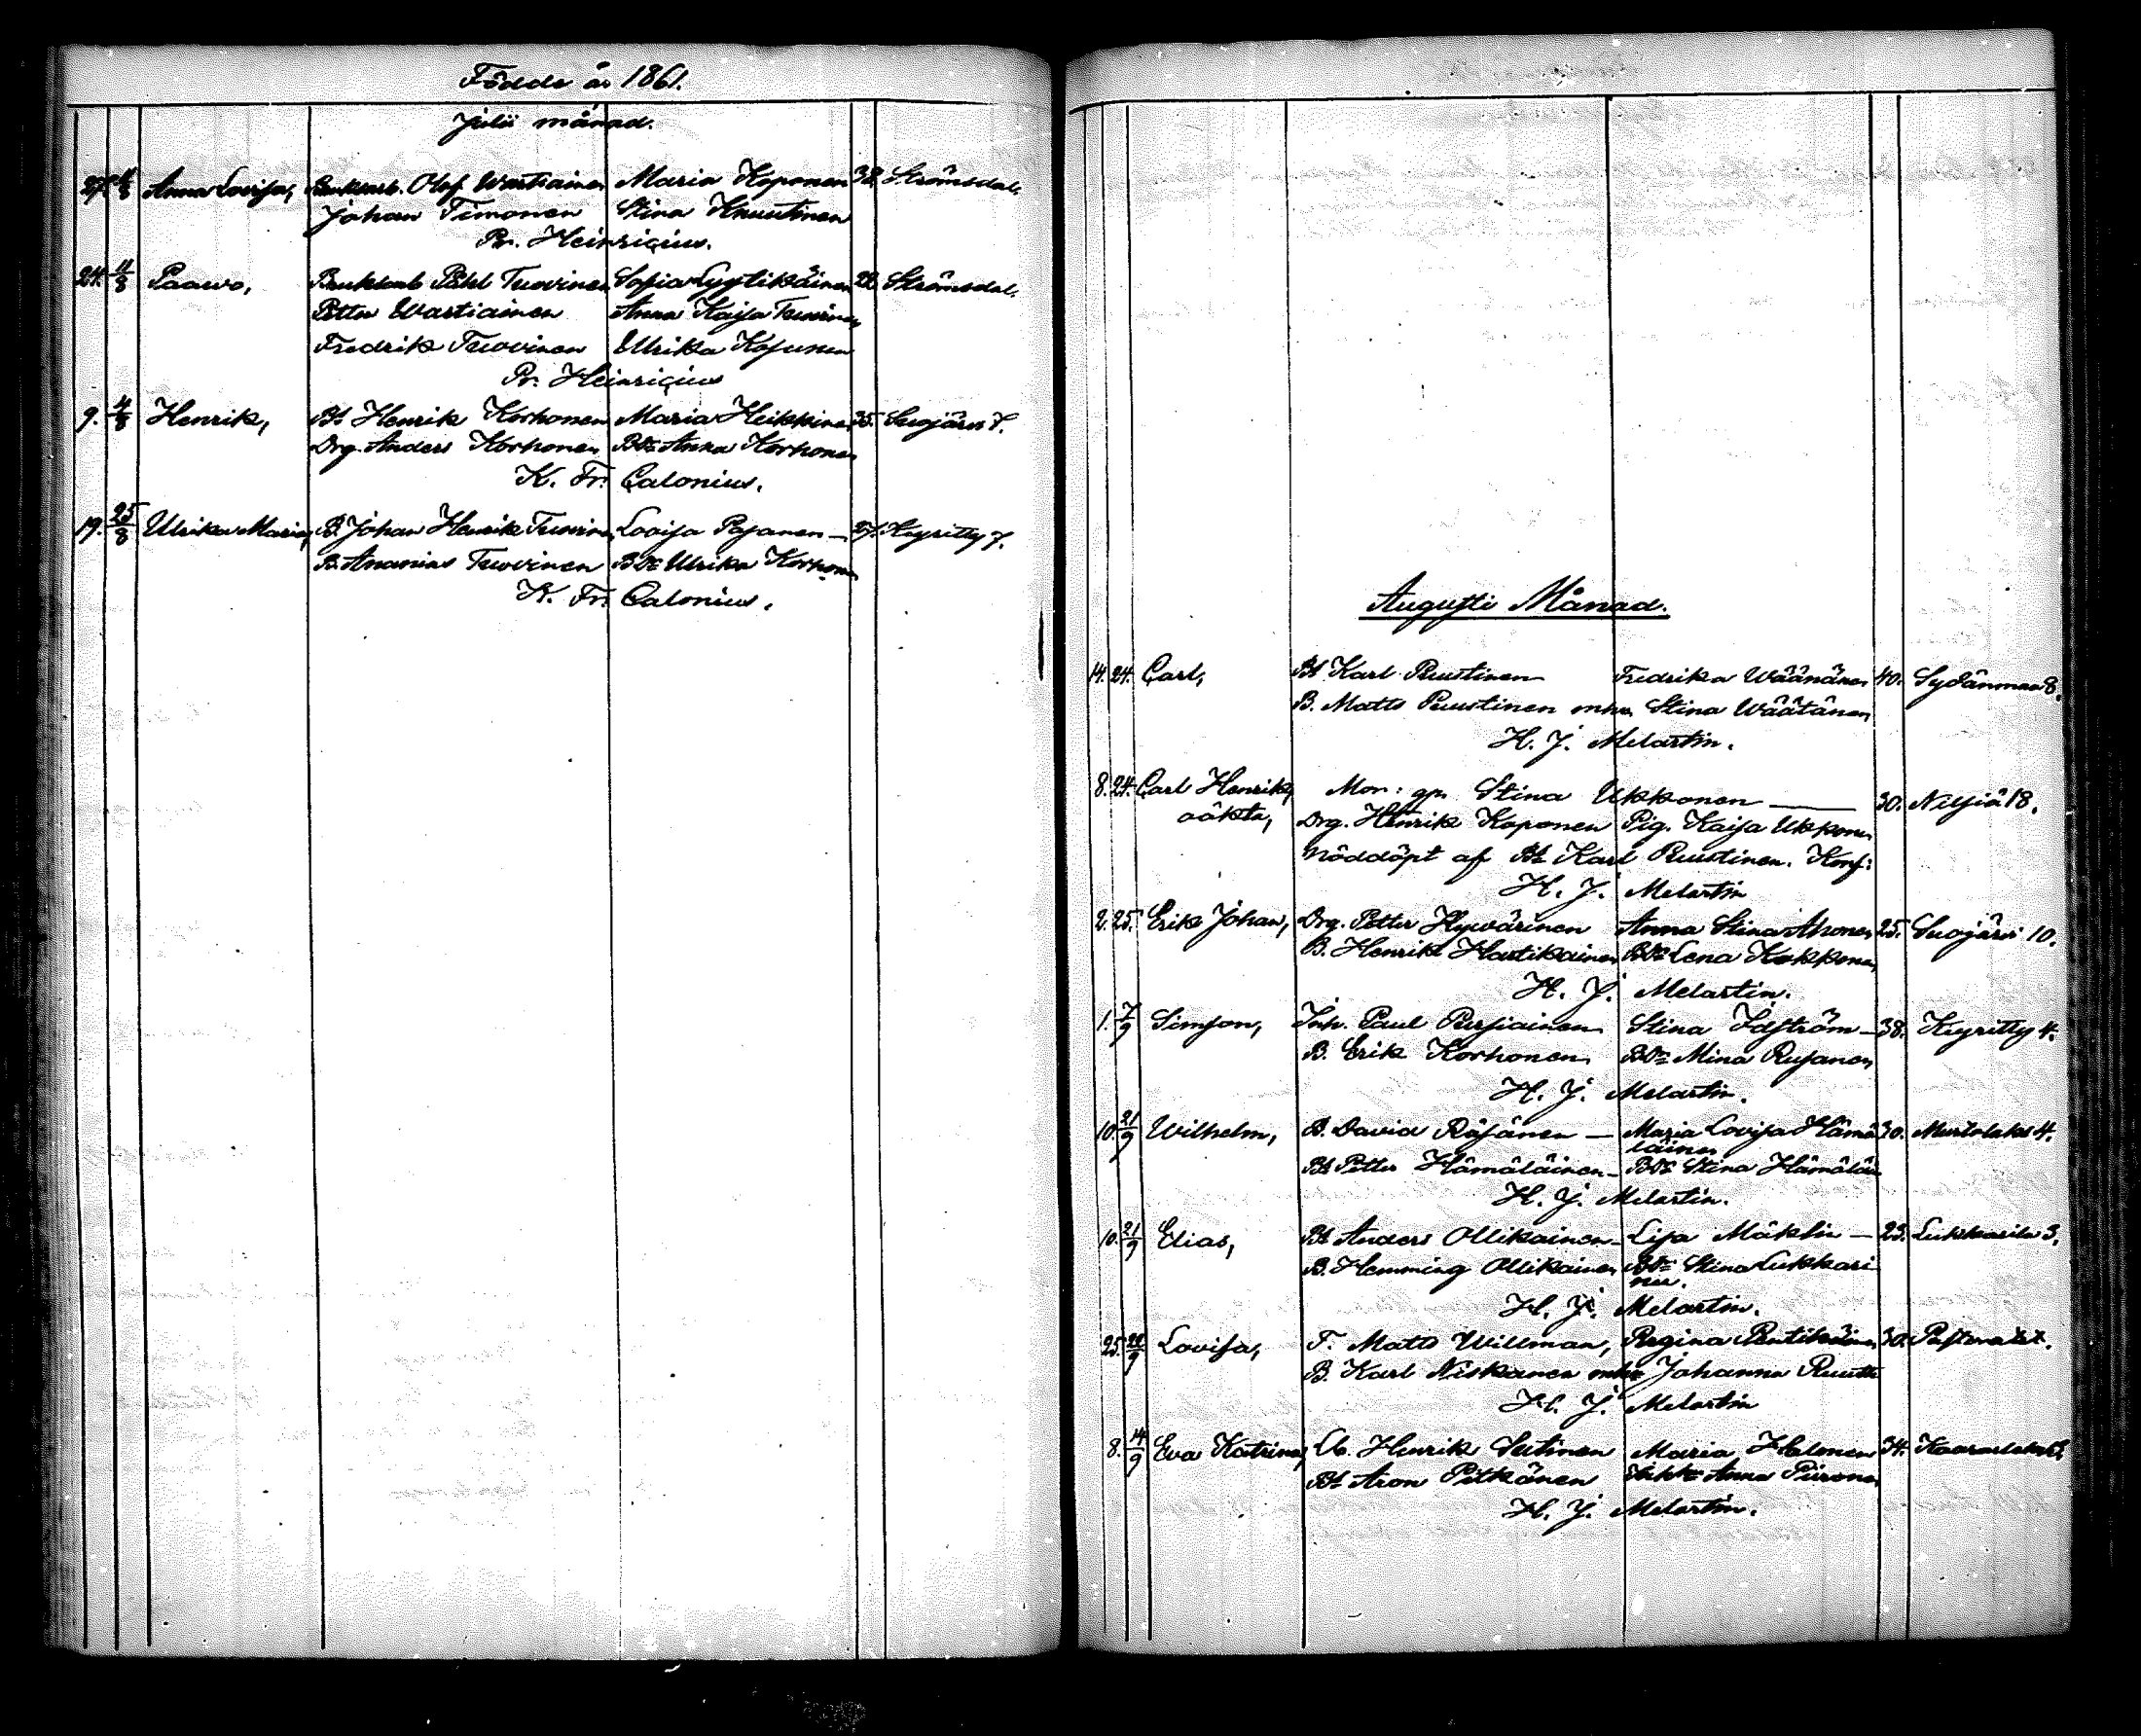 Födde år 1861.
Julii månad.
27. 4/8 Anna Lovisa, Bruksarb. Olof Wartiainen Maria Koponen 32. Strömsdal.
Johan Timonen Stina Knuutinen
Pr. Heinricius.
24. 11/8 Paawo, Bruksarb. Påhl Tuovinen Sofia Lyytikäinen 22. Strömsdal.
Petter Wartiainen Anna Kaisa Tuovinen
Fredrik Tuovinen Ulrika
Pr. Heinricius
9. 4/8 Henrik, Bs Henrik Korhonen Maria Heikkinen 35. Suojärvi 7.
Drg. Anders Korhonen Bdr Anna Korhonen
K. Fr. Calonius.
19. 25/8 Ulrika Maria, B. Johan Henrik Tuovinen Lovisa Pajanen 27. Keyritty 7.
B. Ananias Tuovinen Bdr Ulrika Korhonen
K. Fr. Calonius.
Augusti Månad.
14. 24. Carl, Bs Karl Puustinen Fredrika Wäänänen 40. Sydänmaa 8.
B. Matts Puustinen mhu Stina Wäätänen
H. J. Melartin.
8. 24. Carl Henrik, Mor: gp. Stina Ukkonen 30. Nilsiä 18.
oäkta, Drg. Henrik Koponen Pig. Kaisa Ukkonen
Nöddöpt af Bs Karl Puustinen. Konf:
H. J. Melartin
2. 25. Erik Johan, Drg. Petter Hyvärinen Anna Stina Ahonen 25. Suojärvi 10.
B. Henrik Hartikainen Bdr Lena Kokkonen
H. J. Melartin.
1. 7/9 Simson, Inh. Paul Pursiainen Stina Idström 38. Keyritty 4.
B. Erik Korhonen Bdr Mina
H. J. Melartin.
10. 21/9 Wilhelm, B. David Räsänen Maria Lovisa Hämä 30. Murtolaks 4.
läinen
Bs Petter Hämäläinen Bdr Stina Hämäläin
H. J. Melartin.
10. 21/9 Elias, Bs Anders Ollikainen Lisa Mäklin 23. Lukkarila 3.
B. Hemming Ollikainen Bdr Stina Lukkari
nen.
H. J. Melartin.
25. 22/9 Lovisa, T. Matts Willman, Regina Pentikäinen 30. Pastoratet.
B. Karl Niskanen mhu Johanna
H. J. Melartin
8. 14/9 Eva Katrina, Henrik Maria Halonen 34.
Bs Aron Pitkänen Anna Piironen
H. J. Melartin.